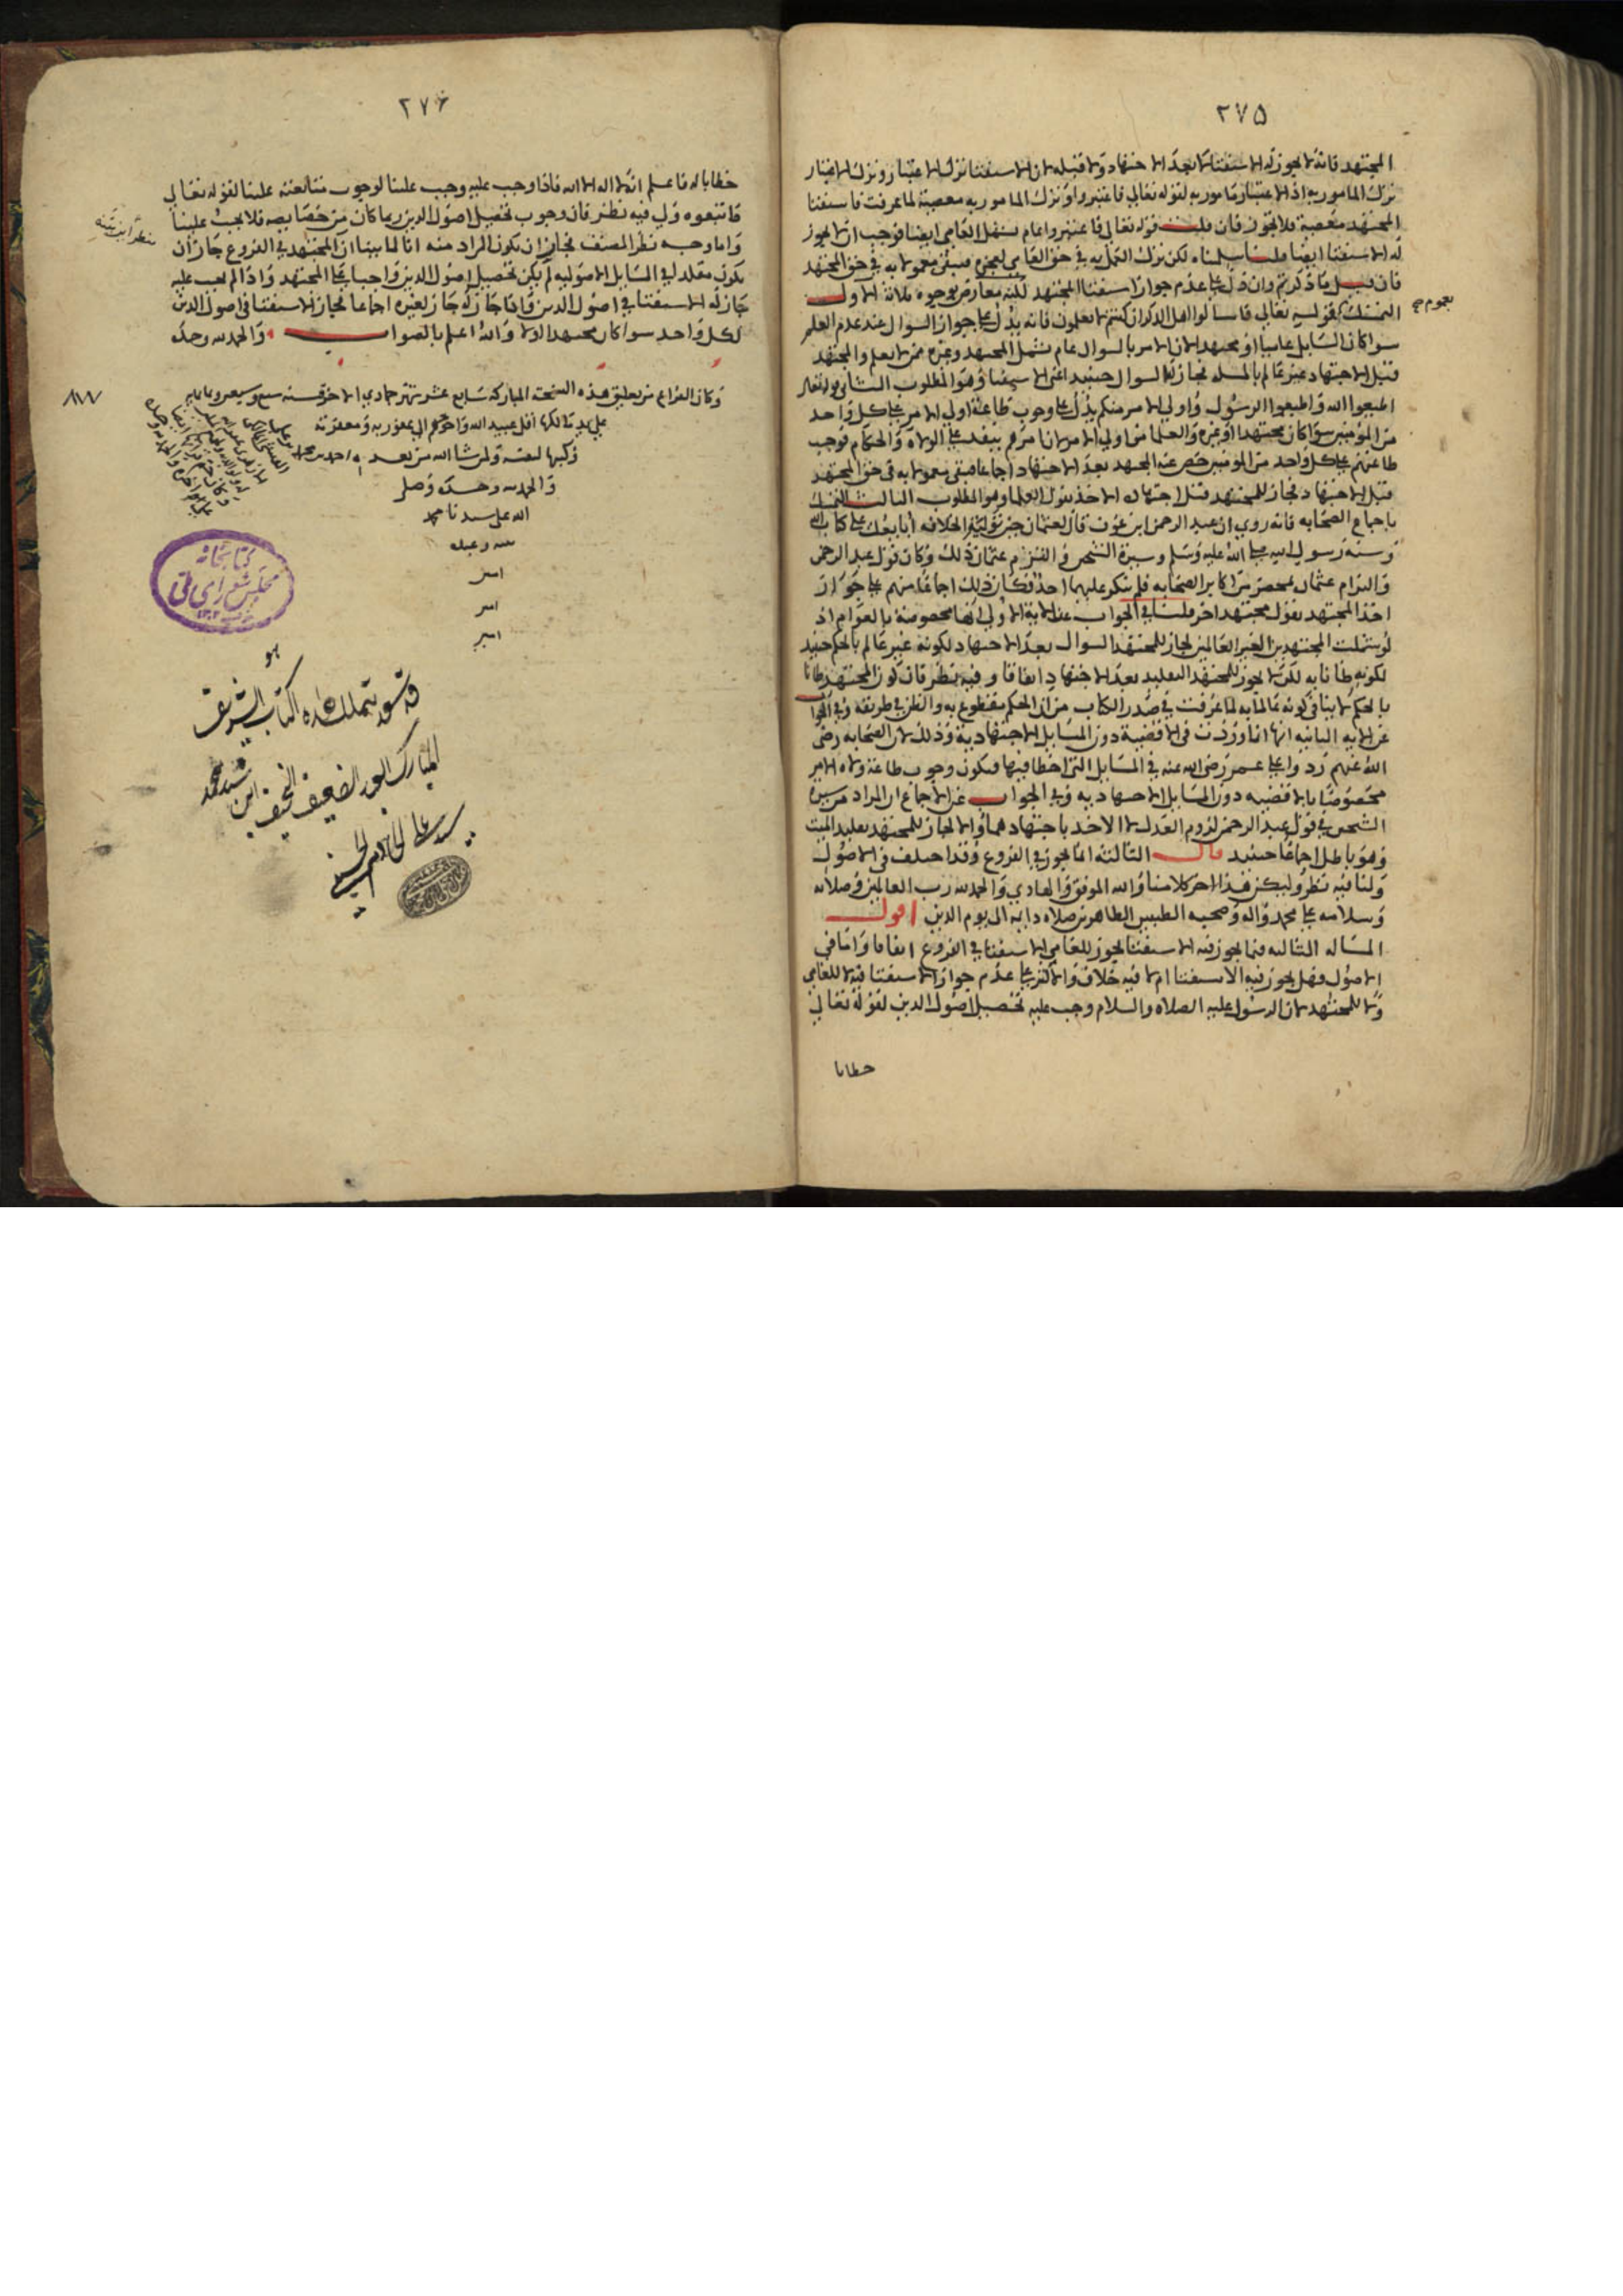 ٢٧٥
المجتهد فانه لا يجوز له الاستفتا لا بعد الاجتهاد ولا قبله لان الاستفتا ترك الاعتبار وترك الاعتبار
ترك المامور به اذ الاعتبار مامور به لقوله تعالى فاعتبروا وترك المامور به معصية لما عرفت فاستفتا
المجتهد معصية فلا يجوز فان قلت قوله تعالى فاعتبروا عام يشمل العامي ايضا فوجب ان لا يجوز
له الاستفتا ايضا قلنا سلمناه لكن ترك العمل به في حق العامي لعجزه فيبقى معمولا به في حق المجتهد
فان قيل ما ذكرتم وان دل على عدم جواز استفتا المجتهد لكنه معارض بوجوه ثلاثة الاول
بعموم صح
التمسك بقوله تعالى فاسالوا اهل الذكر ان كنتم لا تعلمون فانه يدل على جواز السوال عند عدم العلم
سوا كان السايل عاميا او مجتهدا لان الامر بالسوال عام يشمل المجتهد وغيره ممن لا يعلم والمجتهد
قبل الاجتهاد غير عالم بالمسله فجاز له السوال حينيذ اعني الاستفتا وهو المطلوب الثاني قوله تعالى
اطيعوا الله واطيعوا الرسول واولي الامر منكم يدل على وجوب طاعة اولي الامر على كل واحد
من المومنين سوا كان مجتهدا او غيره والعلما من اولي الامر لان امرهم ينفد على الولاة والحكام فوجب
طاعتهم على كل واحد من المومنين خص عنه المجتهد بعد الاجتهاد اجماعا فبقى معمولا به في حق المجتهد
قبل الاجتهاد فجاز للمجتهد قبل اجتهاده الاخذ بقول العلما وهو المطلوب الثالث التمسك
باجماع الصحابه فانه روي ان عبد الرحمن ابن عوف قال لعثمان حين توليته الخلافه ابايعك على كتاب الله
وسنة رسول الله صلى الله عليه وسلم وسيرة الشيخين والتزم عثمان ذلك وكان قول عبد الرحمن
والتزام عثمان بمحضر من اكابر الصحابه فلم ينكر عليهما احد فكان ذلك اجماعا منهم على جواز
اخذ المجتهد بقول مجتهد اخر قلنا في الجواب عن الاية الاولى انها مخصوصة بالعوام اذ
لو شملت المجتهدين الغير العالمين لجاز للمجتهد السوال بعد الاجتهاد لكونه غير عالم بالحكم حينيذ
لكونه ظانا به لكن لا يجوز للمجتهد التقليد بعد الاجتهاد اتفاقا وفيه نظر فان كون المجتهد ظانا
بالحكم لا ينافي كونه عالما به لما عرفت في صدر الكتاب من ان الحكم مقطوع به والظن في طريقه وفي الجواب
عن الايه الثانيه انها انما وردت في الاقضية دون المسايل الاجتهادية وذلك لان الصحابه رضى
الله عنهم ردوا على عمر رضى الله عنه في المسايل التي اخطا فيها فيكون وجوب طاعة ولاه الامر
مخصوصا بالاقضيه دون المسايل الاجتهاديه وفي الجواب عن الاجماع ان المراد من سيرة
الشيخين في قول عبد الرحمن لزوم العدل لا الاخد باجتهادهما والا لجاز للمجتهد تقليد الميت
وهو باطل اجماعا حينيد قال الثالثة انما يجوز في الفروع وقد اختلف في الاصول
ولنا فيه نظر وليكن هذا اخر كلامنا والله الموفق والهادي والحمد لله رب العالمين وصلاته
وسلامه على محمد واله وصحبه الطيبين الطاهرين صلاه دايمه الى يوم الدين اقول
المساله الثالثه فيما يجوز فيه الاستفتا يجوز للعامي الاستفتا في الفروع اتفاقا واما في
الاصول فهل يجوز فيه الاستفتا ام لا فيه خلاف والاكثر على عدم جواز الاستفتا فيه لا للعامي
ولا للمجتهد لان الرسول عليه الصلاه والسلام وجب عليه تحصيل اصول الدين لقوله تعالى
خطابا
٢٧۶
خطابا له فاعلم انه لا اله الا الله فاذا وجب عليه وجب علينا لوجوب متابعته علينا لقوله تعالى
فاتبعوه ولي فيه نظر فان وجوب تحصيل اصول الدين ربما كان من خصايصه فلا يجب علينا
واما وجه نظر المصنف فجاز ان يكون المراد منه انا لما بينا ان المجتهد في الفروع جاز ان
يكون مقلدا في المسايل الاصوليه لم يكن تحصيل اصول الدين واجبا على المجتهد واذا لم يجب عليه
جاز له الاستفتا في اصول الدين فاذا جاز له جاز لغيره اجماعا فجاز الاستفتا في اصول الدين
لكل واحد سوا كان مجتهدا او لا والله اعلم بالصواب والحمد لله وحده
وكان الفراغ من تعليق هذه النسخة المباركه سابع عشر شهر جمادي الاخر سنه سبع وسبعين وثمانمايه
٨٧٧
على يد مالكها اقل عبيد الله واحوجهم الى عفو ربه ومغفرته
وكتبها لنفسه ولمن شا الله من بعده احمد بن محمد
والحمد لله وحده وصلى
الله على سيدنا محمد
امين
امين
امين
كتابخانه
مجلس شورای ملی
هو
قد تشرف بتملك هذه الكتاب الشريف
المبارك العبد الضعيف النحيف ابن سيد محمد
سيد علي